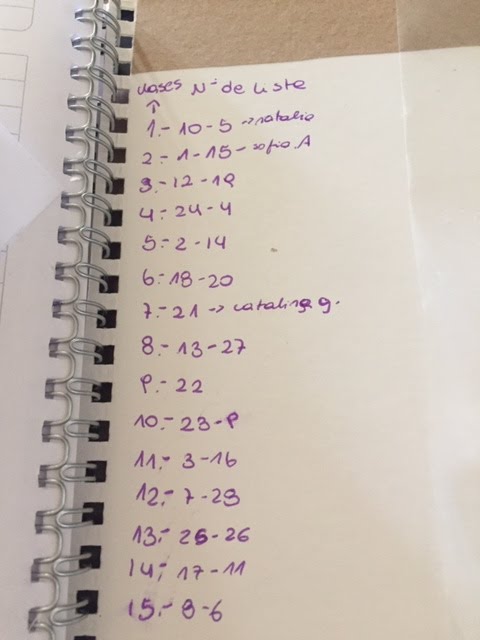 clases Nº de lista
↑
1.- 10-5 → natalia
2.- 1-15 - sofia.A
3.- 12-19
4.- 24-4
5.- 2-14
6.- 18-20
7.- 21 → catalina g.
8.- 13-27
9.- 22
10.- 23-9
11.- 3-16
12.- 7-28
13.- 25-26
14.- 17-11
15.- 8-6